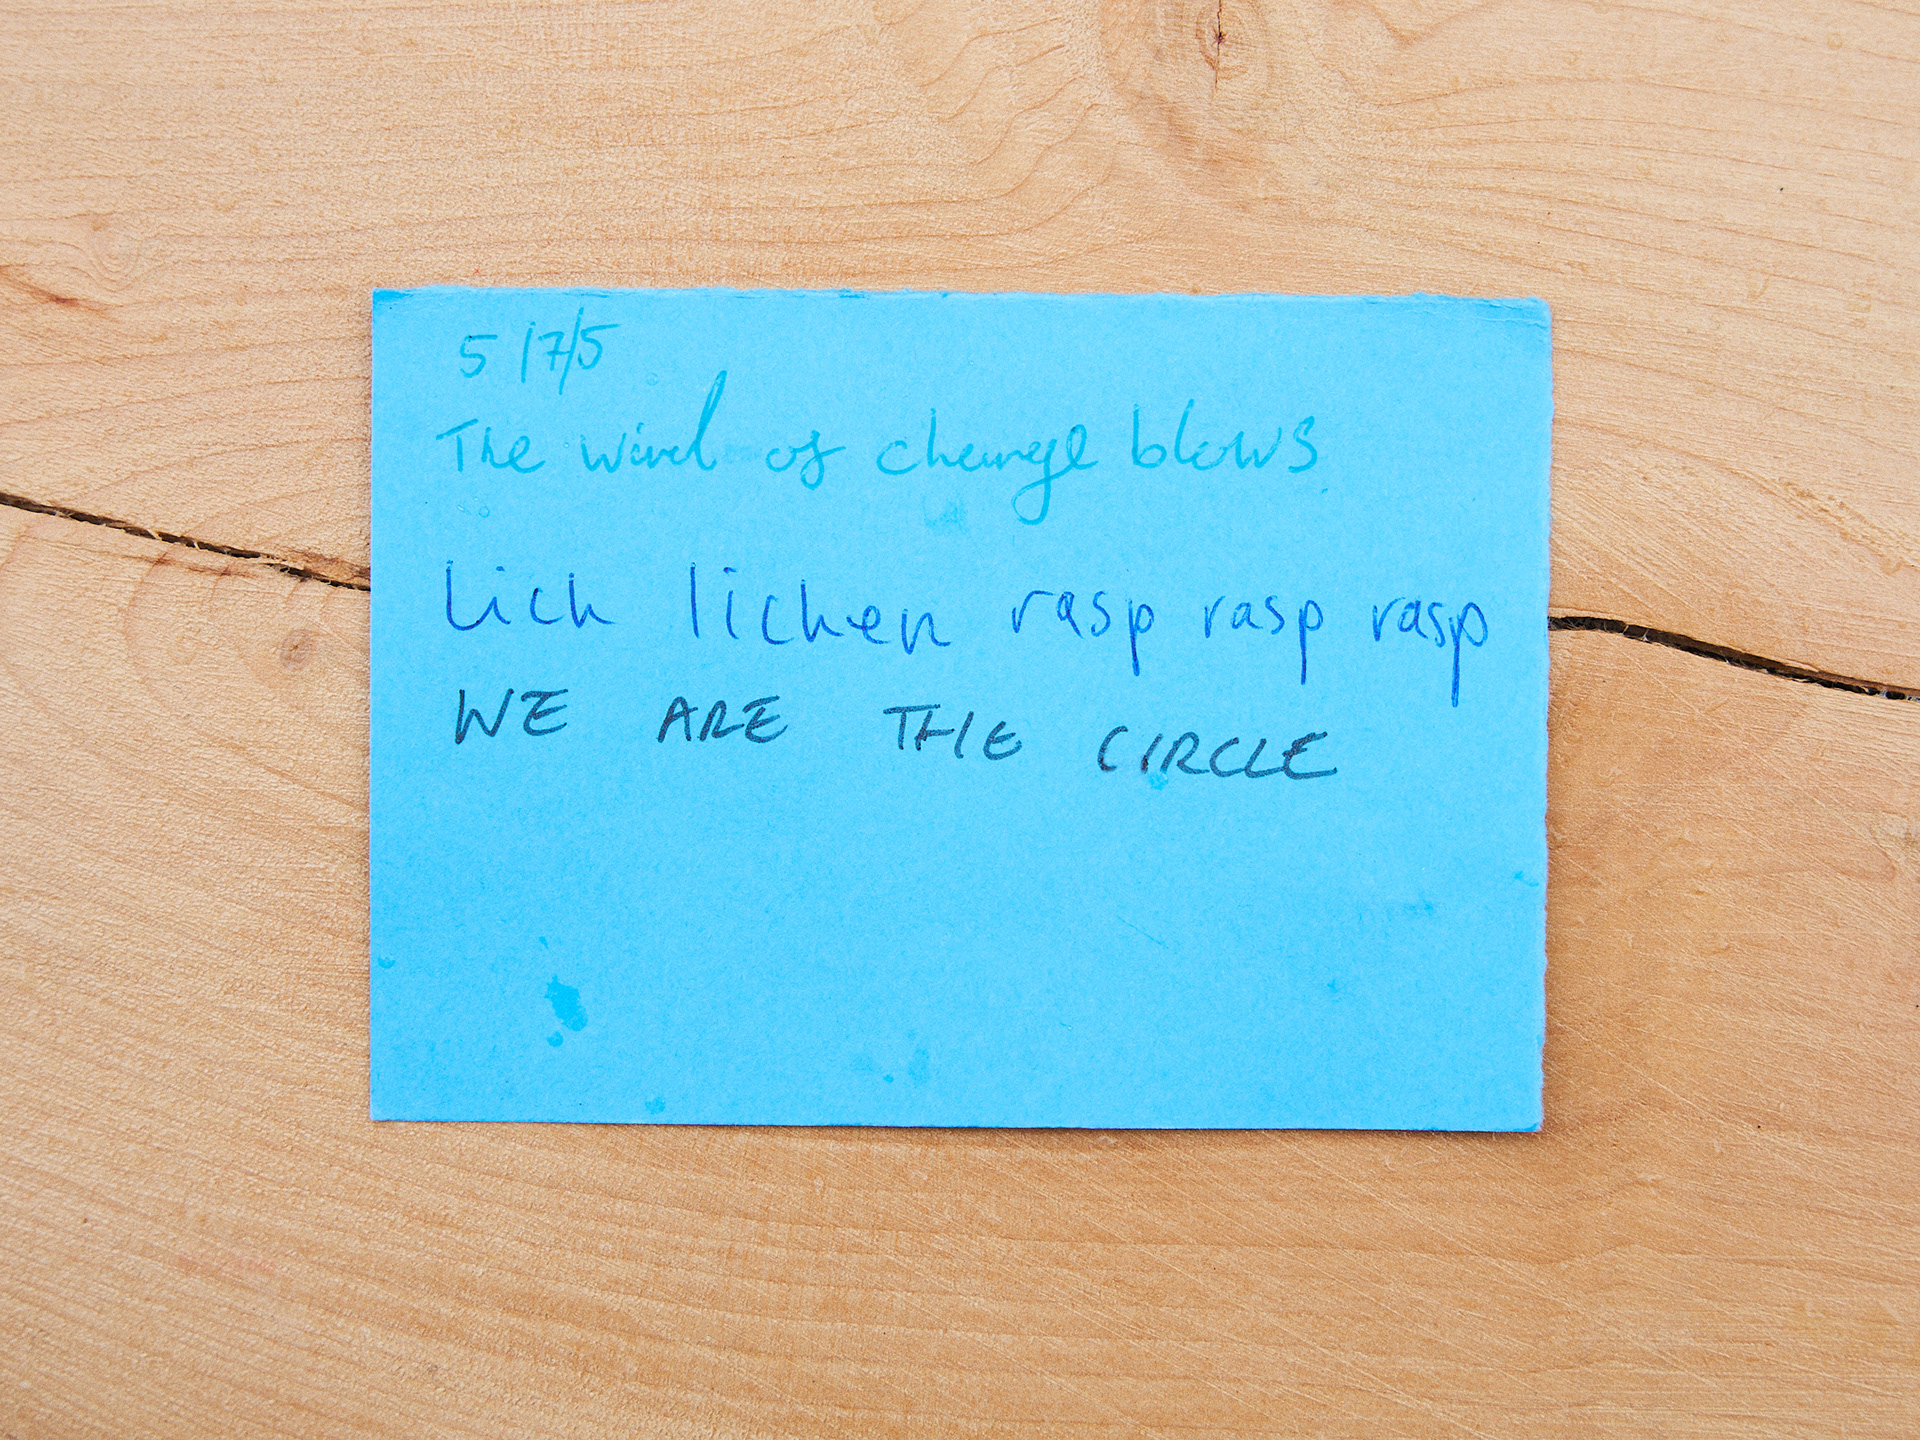 5/7/5
The wind of change blows
Lich lichen rasp rasp rasp
WE ARE THE CIRCLE